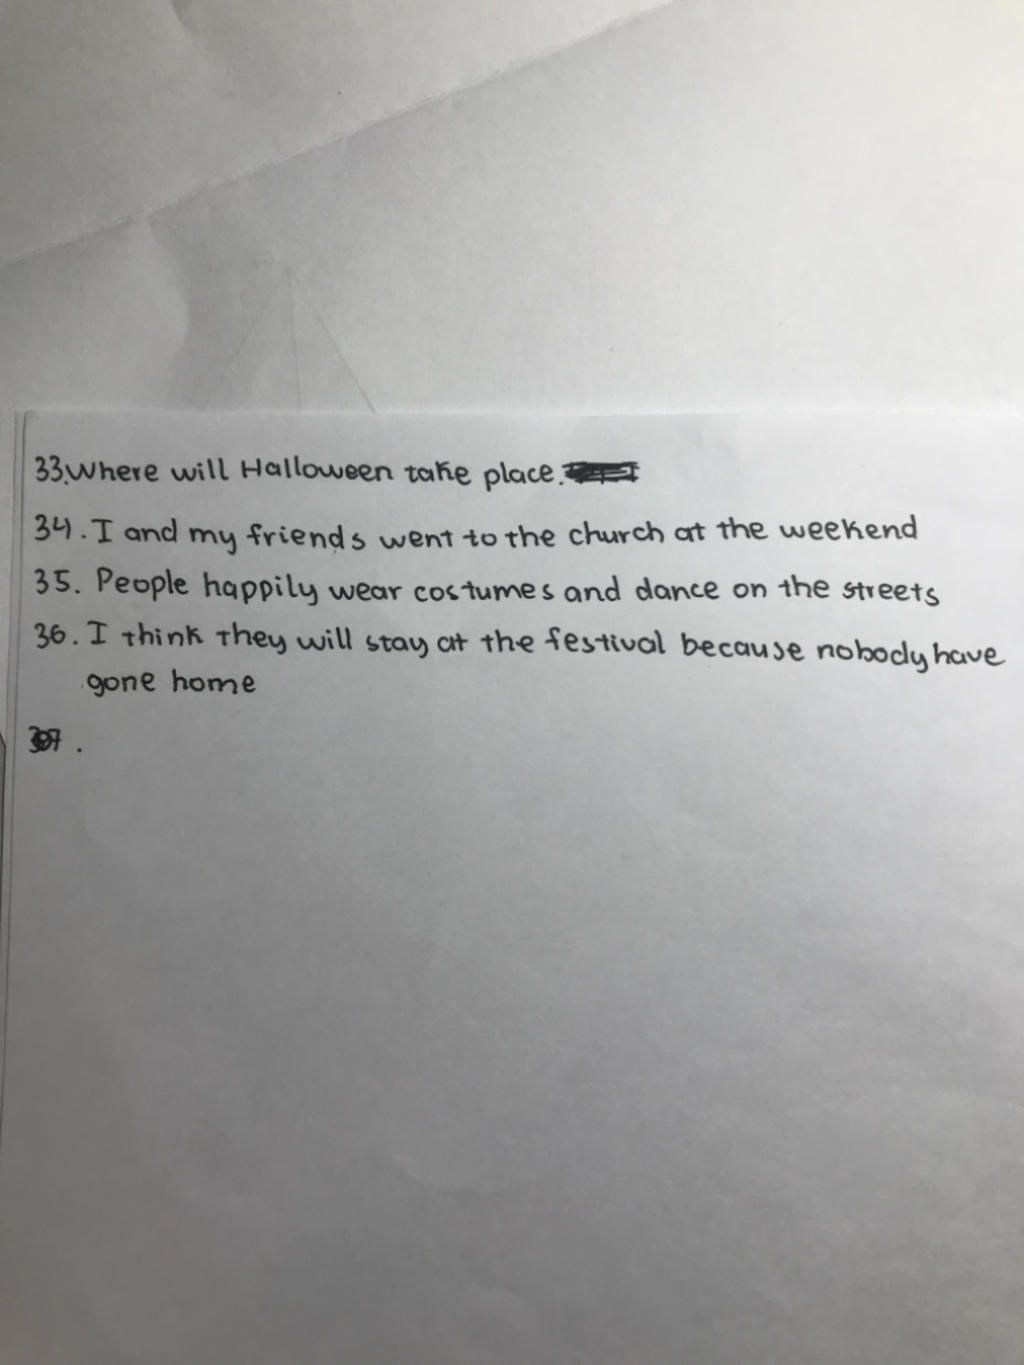 33.Where will Halloween take place.
34. I and my friends went to the church at the weekend
35. People happily wear costumes and dance on the streets
36. I think they will stay at the festival because nobody have
gone home
37.